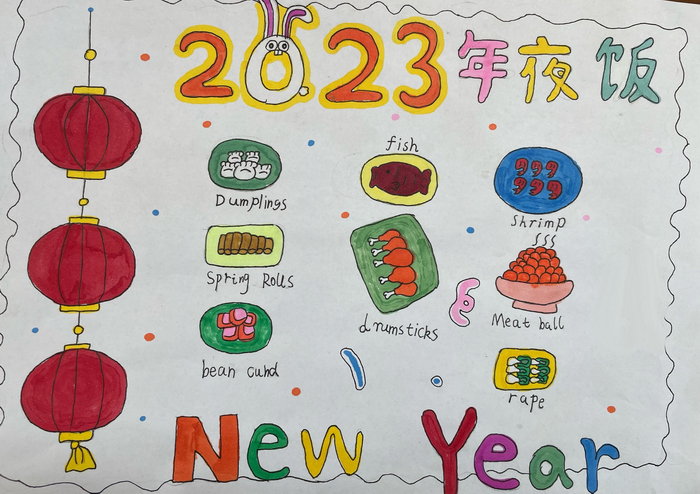 2023年夜饭
fish
Dumplings
Shrimp
Spring Rolls
drumsticks
Meat ball
bean cund
rape
New Year